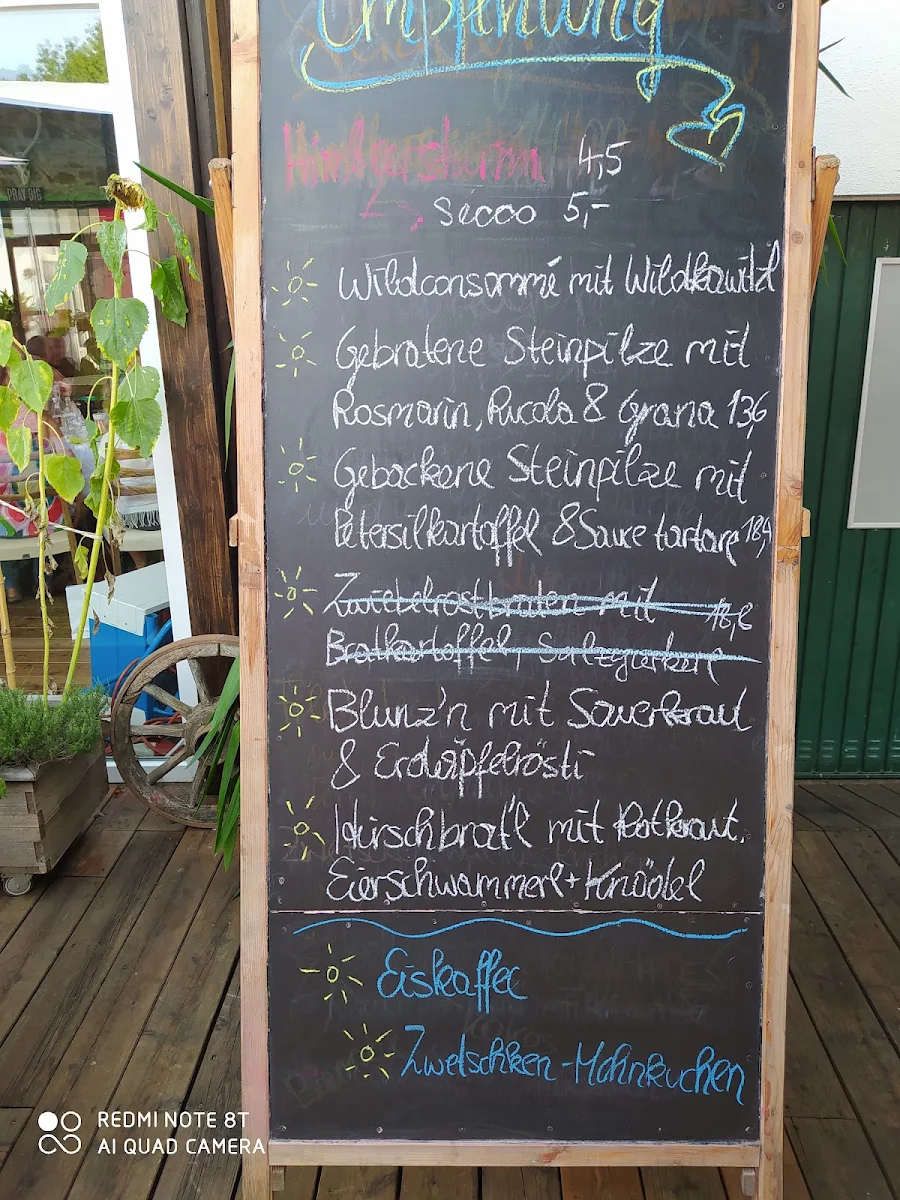 Empfehlung
Himbeersturm 4,5
Secco 5,-
Wildconsommé mit Wildkawitzl
Gebratene Steinpilze mit
Rosmarin, Rucola & Grana 13,6
Gebackene Steinpilze mit
Petersilkartoffel & Sauce tartare 18,9
Zwiebelrostbraten mit 18,6
Bratkartoffel, Salzgurkerl
Blunz'n mit Sauerkraut
& Erdäpfelrösti
Hirschbrat'l mit Rotkraut,
Eierschwammerl + Knödel
Eiskaffee
Zwetschken-Mohnkuchen
REDMI NOTE 8T
AI QUAD CAMERA